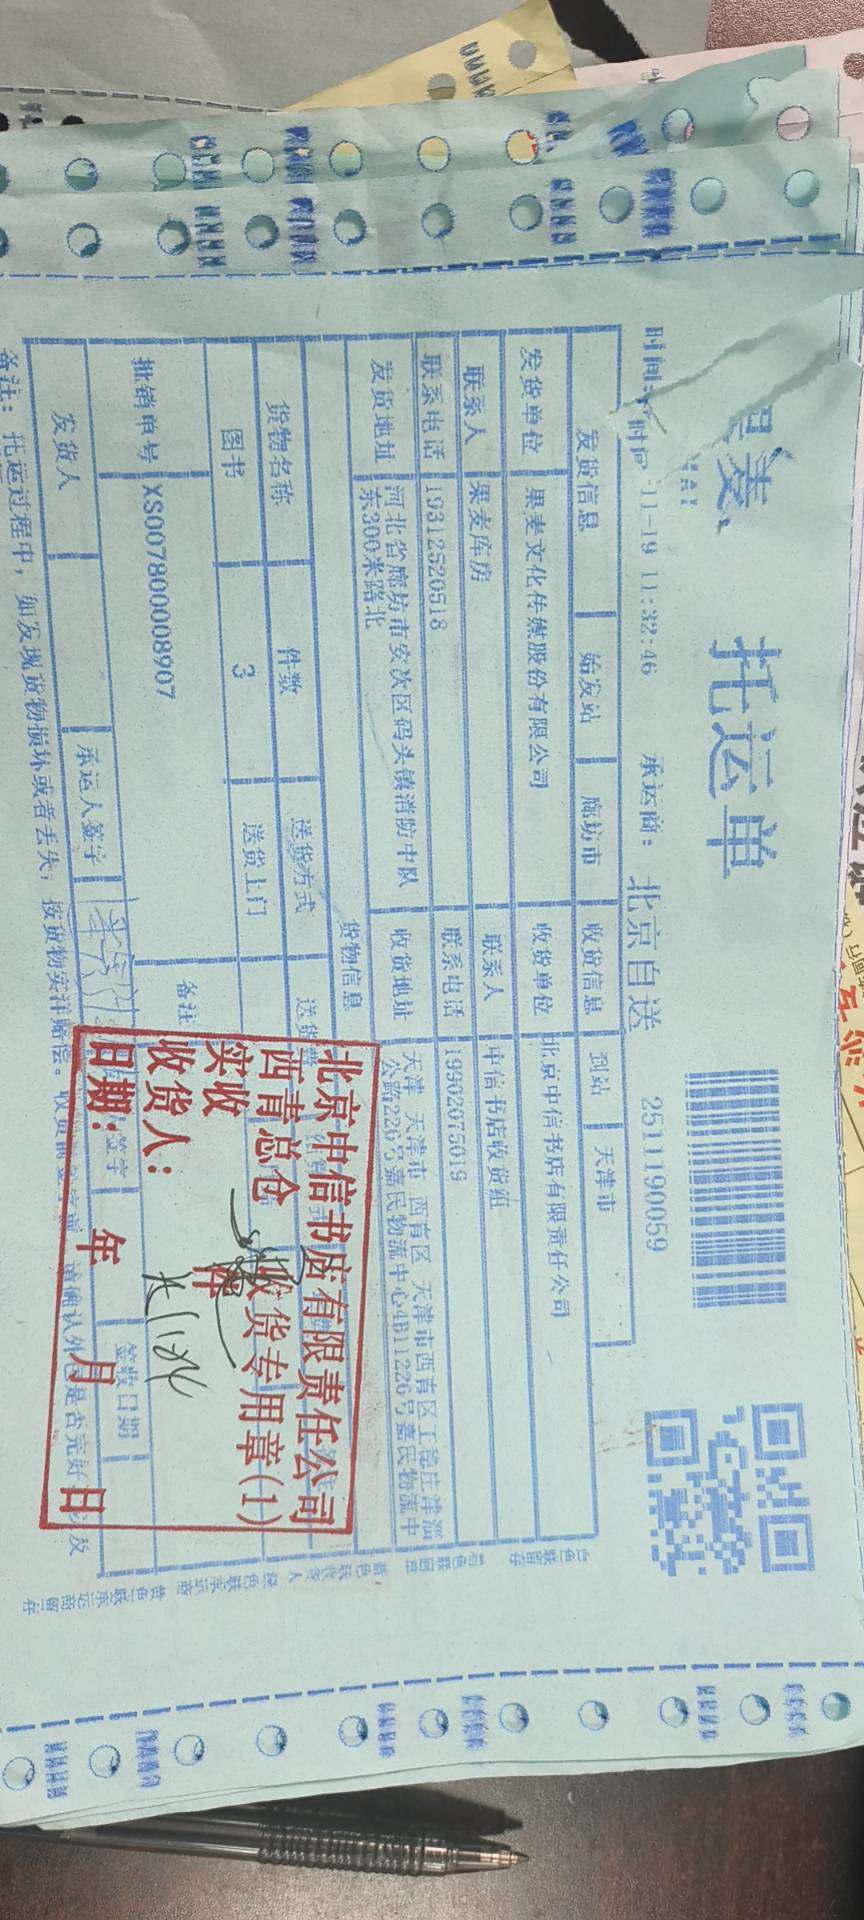 果麦
托运单
2511190059
时间: 时间 -11-19 11:32:46 承运商: 北京自送
发货信息 始发站 廊坊市 收货信息 到站 天津市
发货单位 果麦文化传媒股份有限公司 收货单位 北京中信书店有限责任公司
联系人 果麦库房 联系人 中信书店收货组
联系电话 19312520518 联系电话 19902075019
发货地址 河北省廊坊市安次区码头镇消防中队东300米路北 收货地址 天津 天津市 西青区 天津市西青区 公路226号嘉民物流中心4B11226号嘉民物流中
货物信息
货物名称 件数 送货方式 送货
图书 3 送货上门
批销单号 XS007800008907 备注
发货人 承运人签字 签字 签收日期
备注: 托运过程中, 如发现货物损坏或者丢失, 按货物实洋赔偿。 请确认外包是否完好
北京中信书店有限责任公司
西青总仓 收货专用章(1)
实收 件
收货人:
日期: 年 月 日